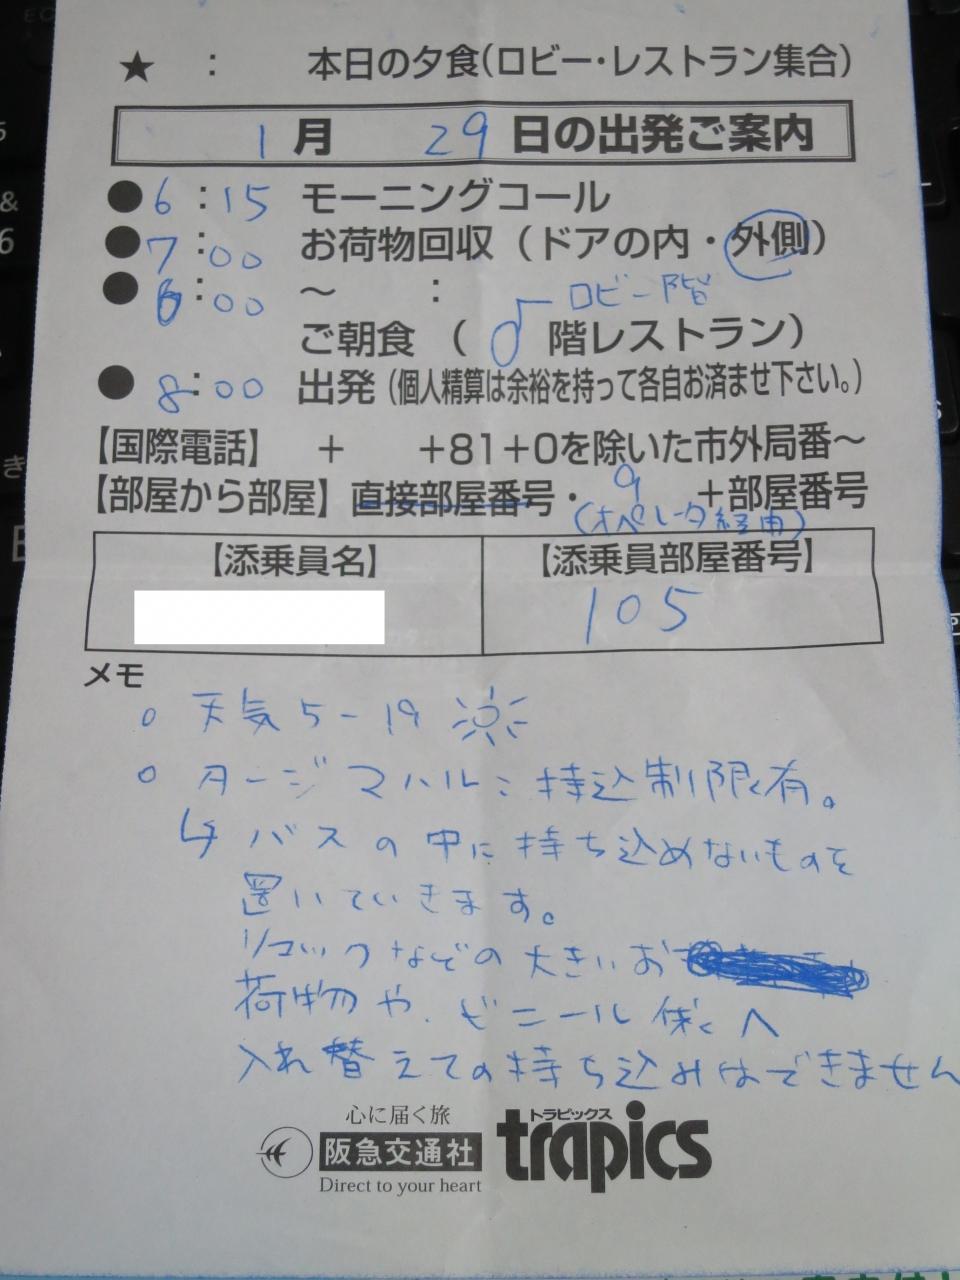 ★ : 本日の夕食(ロビー・レストラン集合)
1月 29日の出発ご案内
●6:15 モーニングコール
●7:00 お荷物回収(ドアの内・外側)
●6:00 ～ : ロビー階
ご朝食 ( 階レストラン)
●8:00 出発(個人精算は余裕を持って各自お済ませ下さい。)
【国際電話】 + +81+0を除いた市外局番～
【部屋から部屋】直接部屋番号・9 +部屋番号
(オペレータ経由)
【添乗員名】 【添乗員部屋番号】
105
メモ
○ 天気 5-19
○ タージマハル:持込制限有。
↳ バスの中に持ち込めないものを
置いていきます。
リュックなどの大きいお
荷物や、ビニール袋へ
入れ替えての持ち込みはできません
心に届く旅
阪急交通社
Direct to your heart
トラピックス
trapics